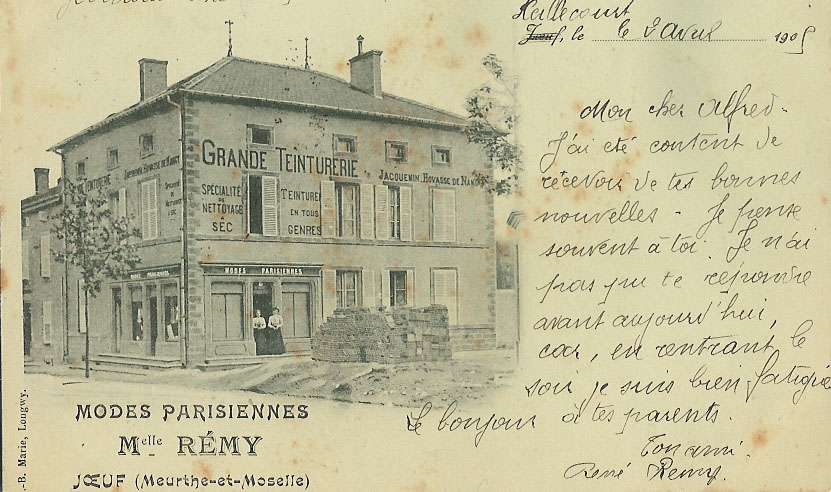 Heillecourt
Jœuf, le le 2 avril 1905
Mon cher Alfred.
J'ai été content de
recevoir de tes bonnes
nouvelles. Je pense
souvent à toi. Je n'ai
pas pu te répondre
avant aujourd'hui,
car, en rentrant le
soir je suis bien fatigué
Le bonjour à tes parents.
Ton ami.
René Remy.
GRANDE TEINTURERIE
JACQUEMIN.HOVASSE DE NANCY
SPÉCIALITÉ
DE
NETTOYAGE
À
SEC
TEINTURE
EN TOUS
GENRES
GRANDE TEINTURERIE
JACQUEMIN HOVASSE DE NANCY
MODES PARISIENNES
MODES PARISIENNES
MODES PARISIENNES
Melle RÉMY
JŒUF (Meurthe-et-Moselle)
-B. Marie, Longwy.